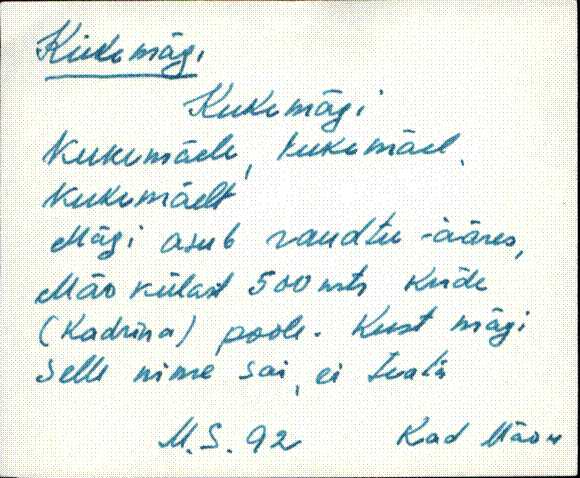 Kukemägi
Kukemägi
Kukemäele, kukemäel,
kukemäelt
Mägi asub raudtee ääres,
Mäo külast 500 mts Kiide
(Kadrina) poole. Kust mägi
selle nime sai, ei teata
M.S. 92 Kad